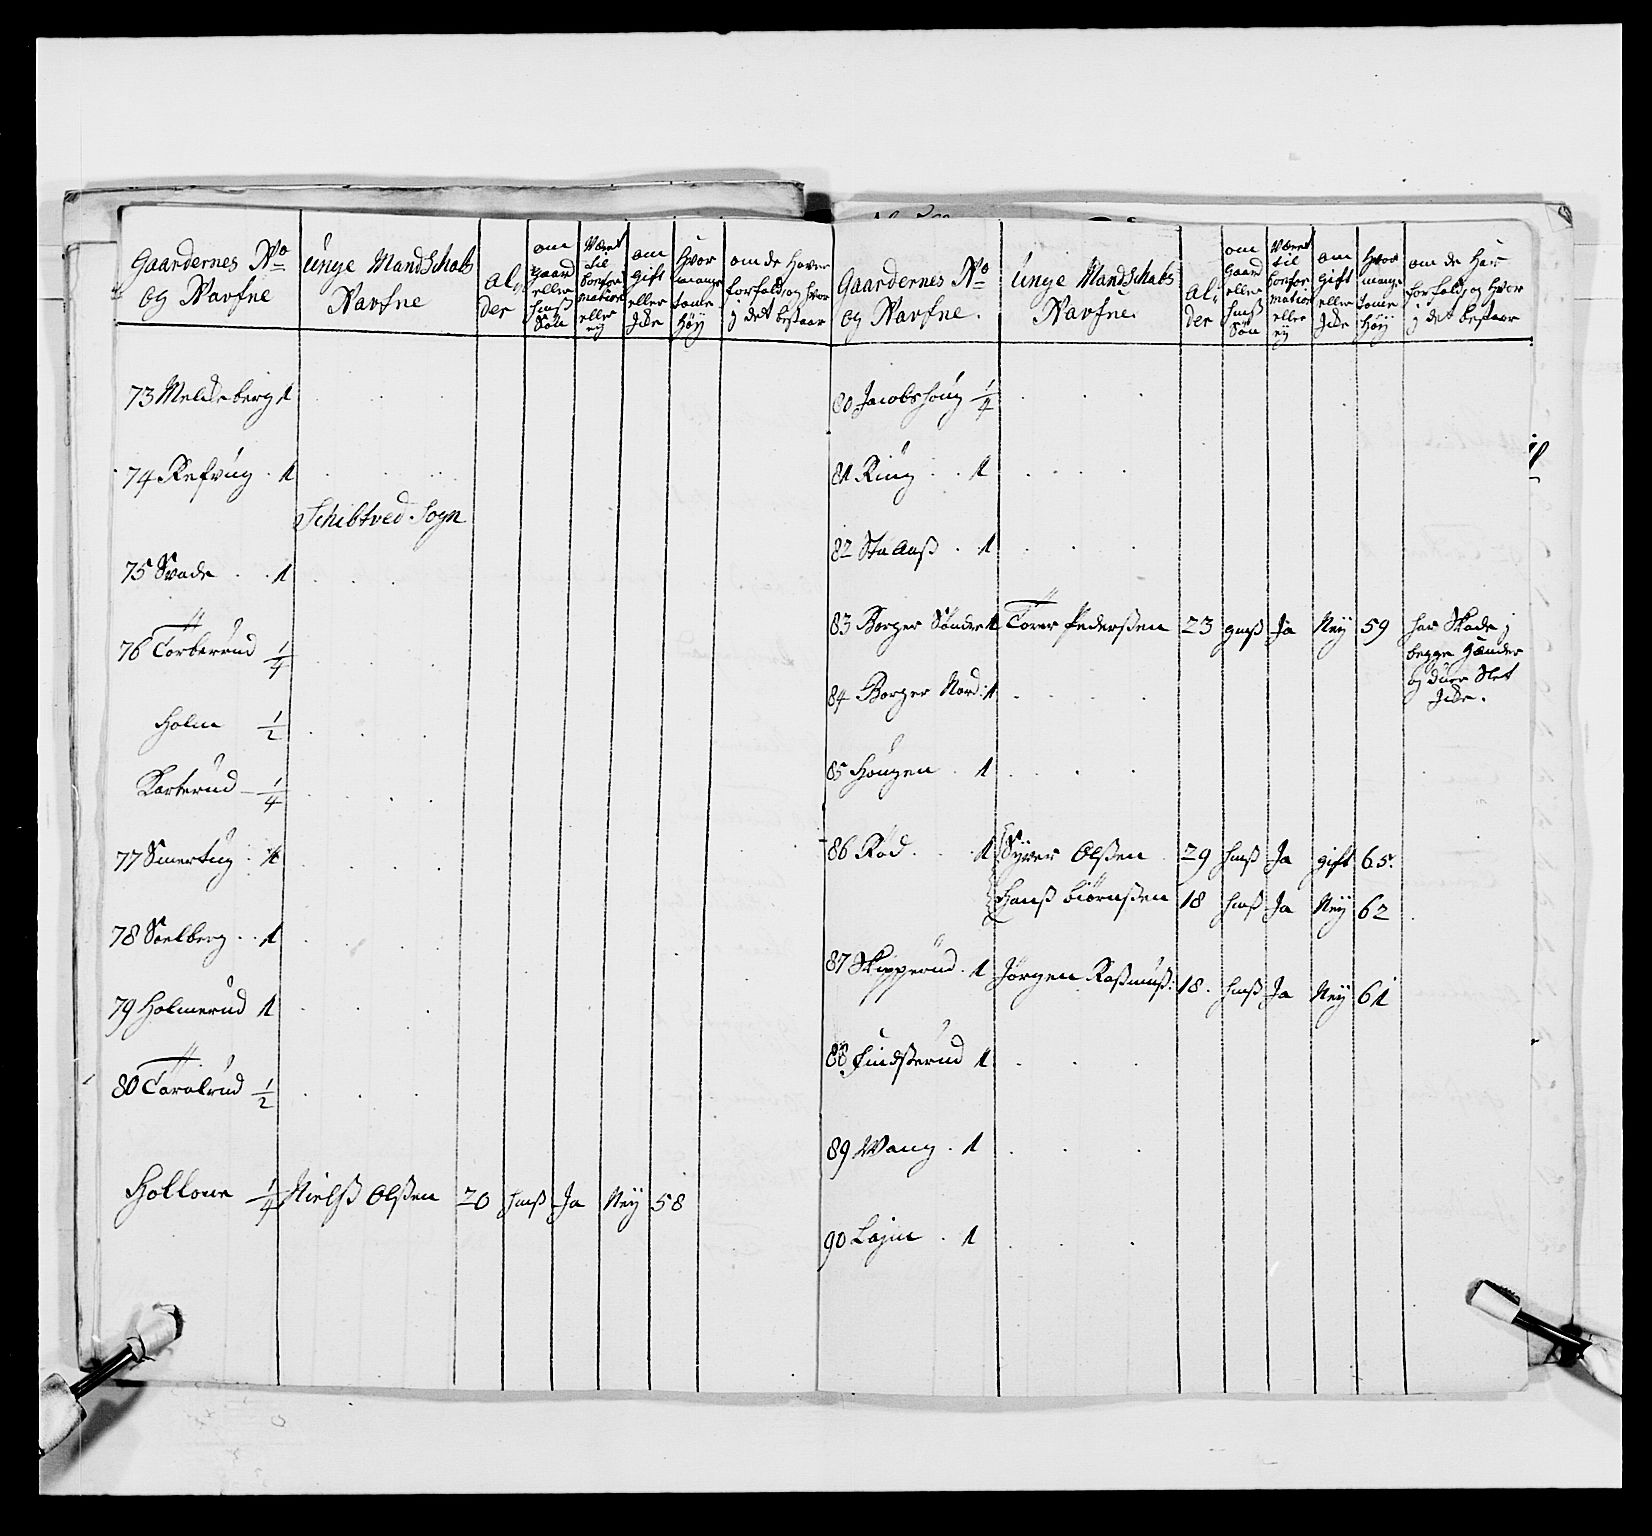 Gaardernes No
og Nafne
Unge Mandschabs
Nafne
al,,
der
om
gaard
eller
huuß
Søn
Været
til
Confir
mation
eller
ey
om
gift
eller
Icke
Hvor
mange
tomr
høy
om de haver
forfald, og hvor
j det bestaar
73 Melleberg 1
74 Refvug . 1
Schibtved Sogn
75 Svade . . 1
76 Torberud 1/4
Holm 1/2
Karterud 1/4
77 Smertug . 1
78 Soelberg . . 1
79 Holmerud 1
80 Taralrud 1/2
Hollone 1/4 Nielß Olßen 20 huuß Ja Ney 58
Gaardernes No
og Nafne.
Unge Mandschabs
Nafne.
al,,
der
om
gaard
eller
huuß
Søn
Været
til
Confir
mation
eller
ey
om
gift
eller
Icke
Hvor
mange
tomr
høy
om de har
forfald, og hvor
j det bestaar
80 Jacobshoug 1/4
81 Ring . . 1
82 Stu Aaß . 1
83 Borger Søndre 1 Torer Pederßen 23 gmß Ja Ney 59 har Skade j
begge Hænder
og duer Slet
Icke.
84 Borger Nord: 1
85 Hougen . 1
86 Rød . . . 1 Syver Olßen 29 huuß Ja gift 65.
Hanß Biørnßen 18 huuß Ja Ney 62
87 Skipperud . 1 Jørgen Raßmuß: 18. huuß Ja Ney 61
88 Findsterud 1
89 Wang . 1
90 Lajm . 1